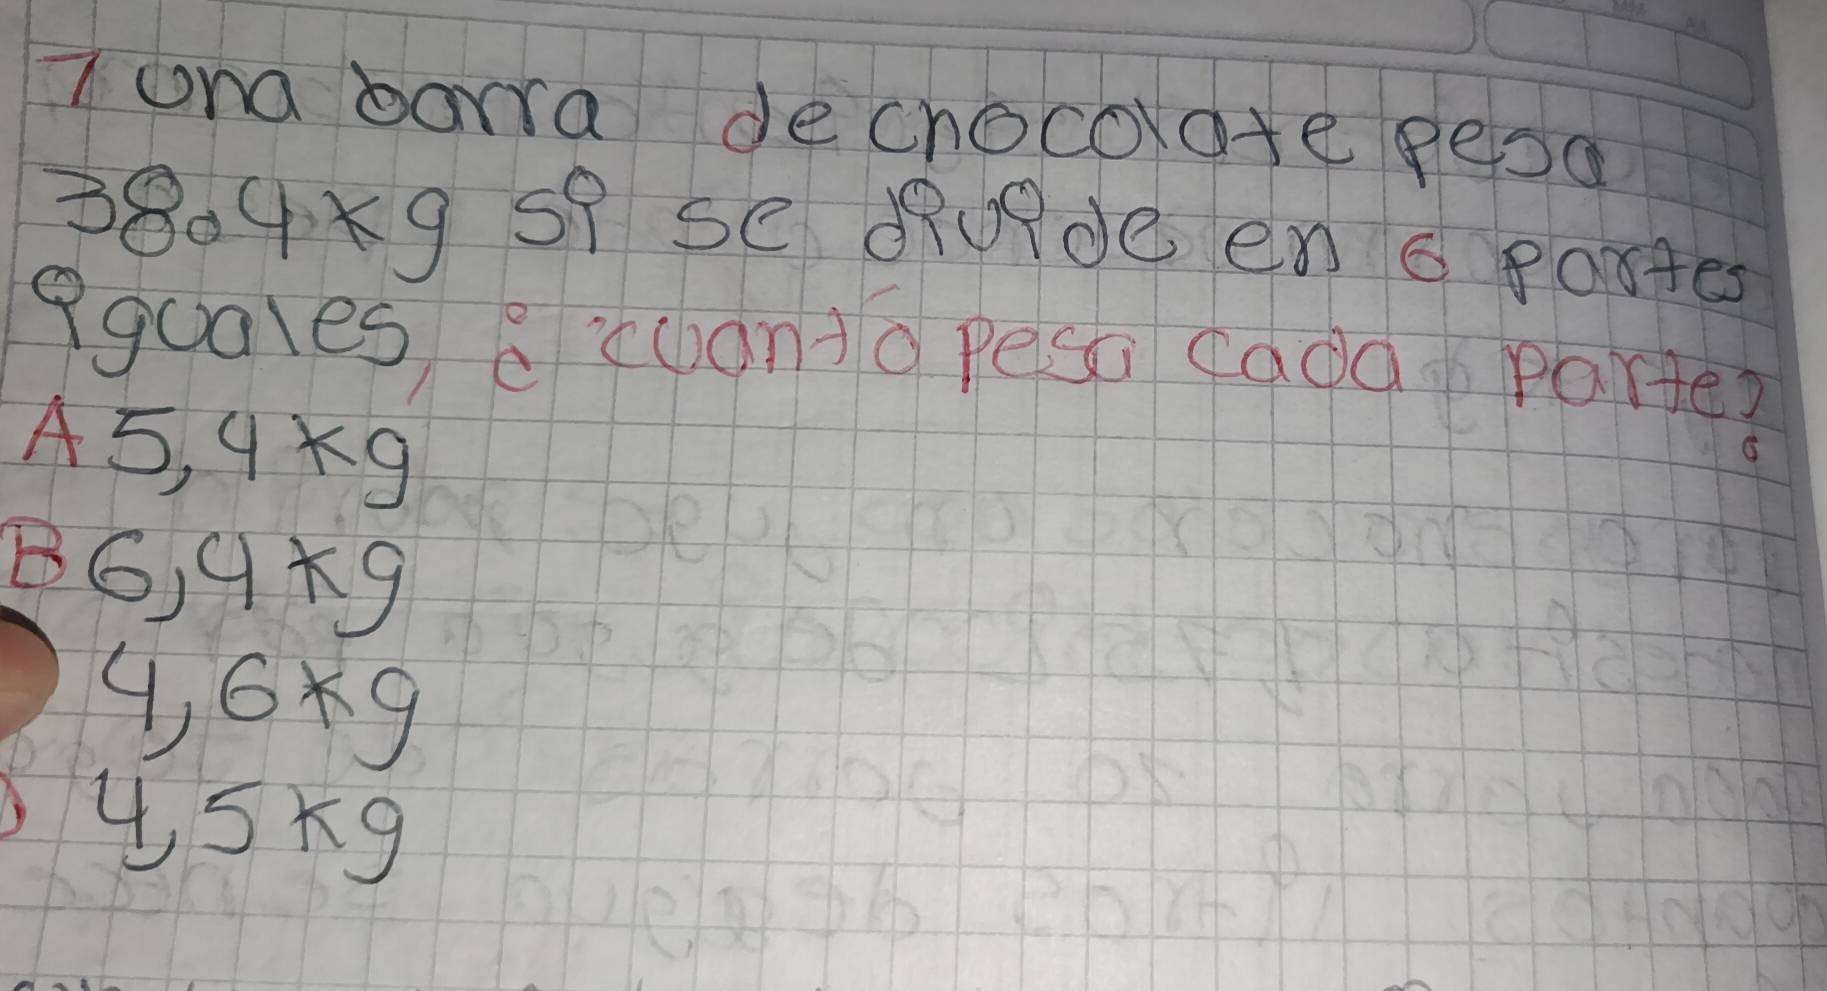 7 una barra de chocolate pesa
38.4 kg si se divide en 6 partes
iguales, ¿cuánto pesa cada parte?
A 5,4 kg
B 6,4 kg
4,6 kg
D 4,5 kg